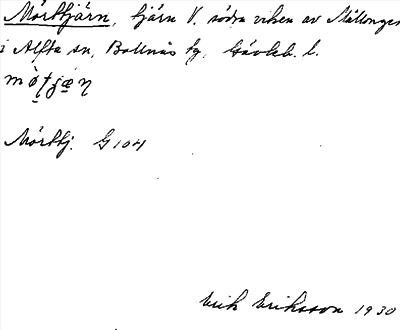 Mörttjärn, tjärn V. södra viken av Mållången
i Alfta sn, Bollnäs tg, Gävleb. l.
Mörttj. G 104
Erik Eriksson 1930